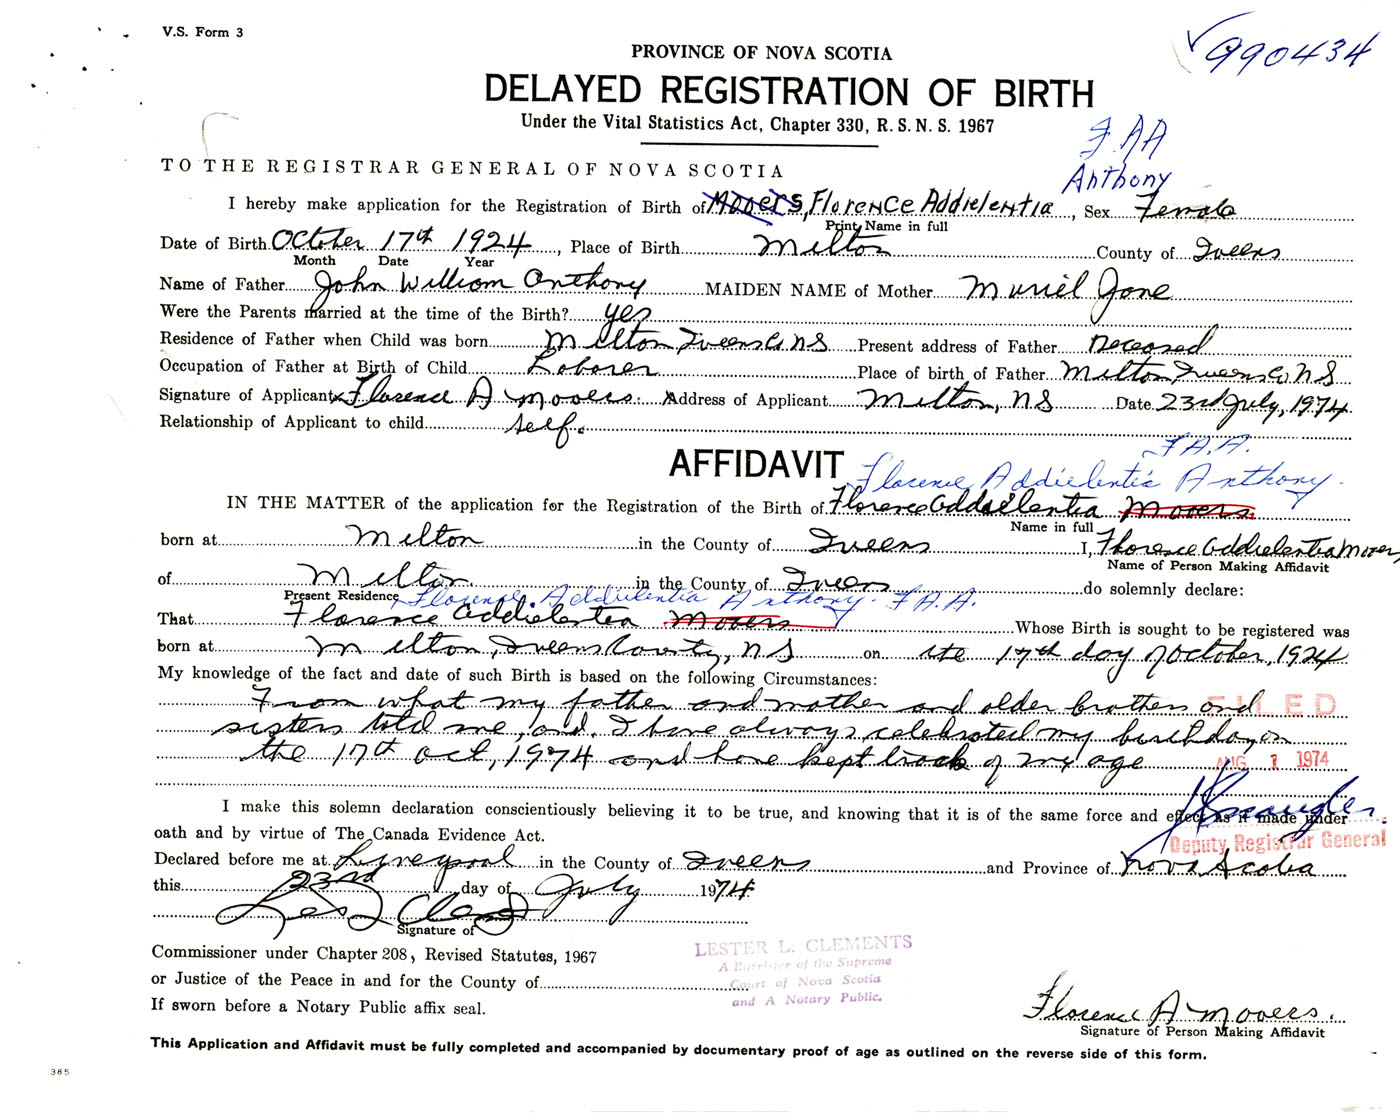 V.S. Form 3
990434
PROVINCE OF NOVA SCOTIA
DELAYED REGISTRATION OF BIRTH
Under the Vital Statistics Act, Chapter 330, R. S. N. S. 1967
F.A.A
Anthony
TO THE REGISTRAR GENERAL OF NOVA SCOTIA
I hereby make application for the Registration of Birth of Mooers, Florence Addielentia, Sex Female
Print Name in full
Date of Birth October 17th 1924, Place of Birth Milton County of Queens
Month Date Year
Name of Father John William Anthony MAIDEN NAME of Mother Muriel Jane
Were the Parents married at the time of the Birth? yes
Residence of Father when Child was born Milton Queens Co NS Present address of Father Deceased
Occupation of Father at Birth of Child Laborer Place of birth of Father Milton, Queens Co, NS
Signature of Applicant x Florence A Mooers Address of Applicant Milton, NS Date 23rd July, 1974
Relationship of Applicant to child self.
F.A.A.
AFFIDAVIT
Florence Addielentia Anthony.
IN THE MATTER of the application for the Registration of the Birth of Florence Addielentia Mooers
Name in full
born at Milton in the County of Queens I, Florence Addielentia Mooers
Name of Person Making Affidavit
of Milton in the County of Queens do solemnly declare:
Present Residence Florence Addielentia Anthony. F.A.A.
That Florence Addielentia Mooers Whose Birth is sought to be registered was
born at Milton, Queens County, NS on the 17th day of October, 1924
My knowledge of the fact and date of such Birth is based on the following Circumstances:
From what my father and mother and older brothers and
FILED
sisters told me, and I have always celebrated my birthday on
the 17th Oct, 1974 and have kept track of my age
AUG 1 1974
I make this solemn declaration conscientiously believing it to be true, and knowing that it is of the same force and effect as if made under
oath and by virtue of The Canada Evidence Act.
Deputy Registrar General
Declared before me at Liverpool in the County of Queens and Province of Nova Scotia
this 23rd day of July 1974
Signature of
Commissioner under Chapter 208, Revised Statutes, 1967
or Justice of the Peace in and for the County of
If sworn before a Notary Public affix seal.
LESTER L. CLEMENTS
A Barrister of the Supreme
Court of Nova Scotia
and A Notary Public.
Florence A Mooers.
Signature of Person Making Affidavit
This Application and Affidavit must be fully completed and accompanied by documentary proof of age as outlined on the reverse side of this form.
385